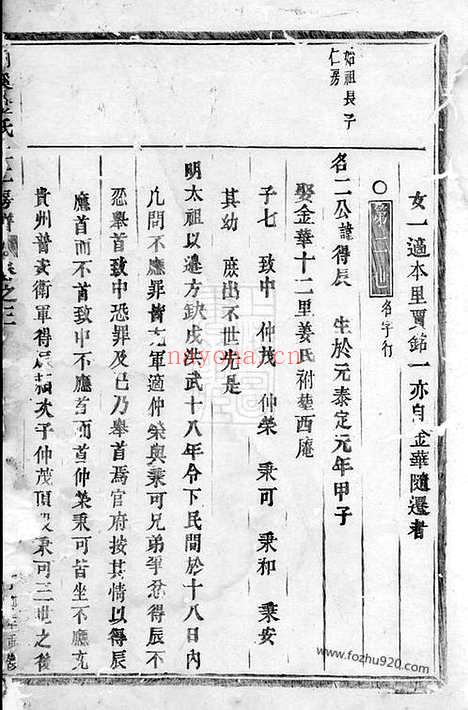 始祖長子
仁房
女一適本里賈銘一亦自金華隨遷者
第二世
名字行
名二公諱得辰 生於元泰定元年甲子
娶金華十二里姜氏祔塟西庵
子七 致中 仲茂 仲榮 秉可 秉和 秉安
其幼 庶出不世先是
明太祖以邉方缺戍洪武十八年令下民間於十八日內
几問不應罪皆充軍適仲榮與秉可兄弟爭忿得辰不
忍舉首致中恐罪及己乃舉首焉官府按其情以得辰
應首而不首致中不應首而首仲榮秉可皆坐不應充
貴州普安衛軍得辰 次子仲茂頂 秉可三世之後
氏 房譜 卷之三
nayona.cn
www.fozhu920.com